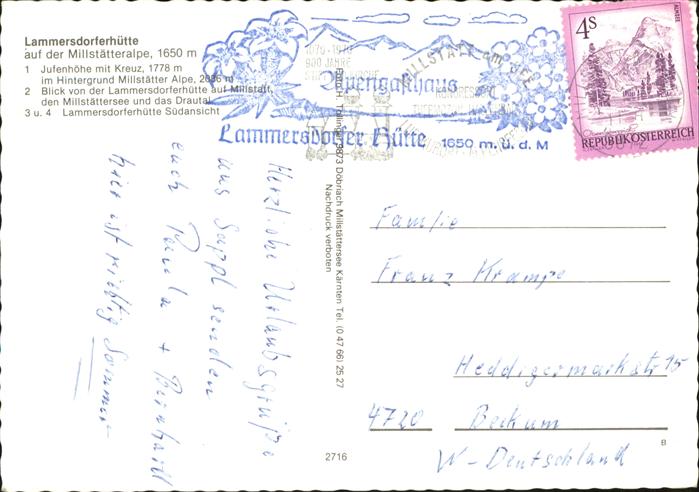 Lammersdorferhütte
auf der Millstätteralpe, 1650 m
1 Jufenhöhe mit Kreuz, 1778 m
im Hintergrund Millstätter Alpe, 2086 m
2 Blick von der Lammersdorferhütte auf Millstatt,
den Millstättersee und das Drautal
3 u. 4 Lammersdorferhütte Südansicht
Alpengasthaus
Lammersdorfer Hütte 1650 m. ü. d. M
MILLSTATT AM SEE
1070-1970
900 JAHRE
4S
REPUBLIK ÖSTERREICH
9873 Döbriach Millstättersee Kärnten Tel. (0 47 66) 25 27
Nachdruck verboten
Herzliche Urlaubsgrüße
aus Sappl senden
euch Paula + Bernhard
hier ist richtig Sommer
Familie
Franz Krampe
Heddigermarkstr 15
4720 Beckum
W-Deutschland
2716
B